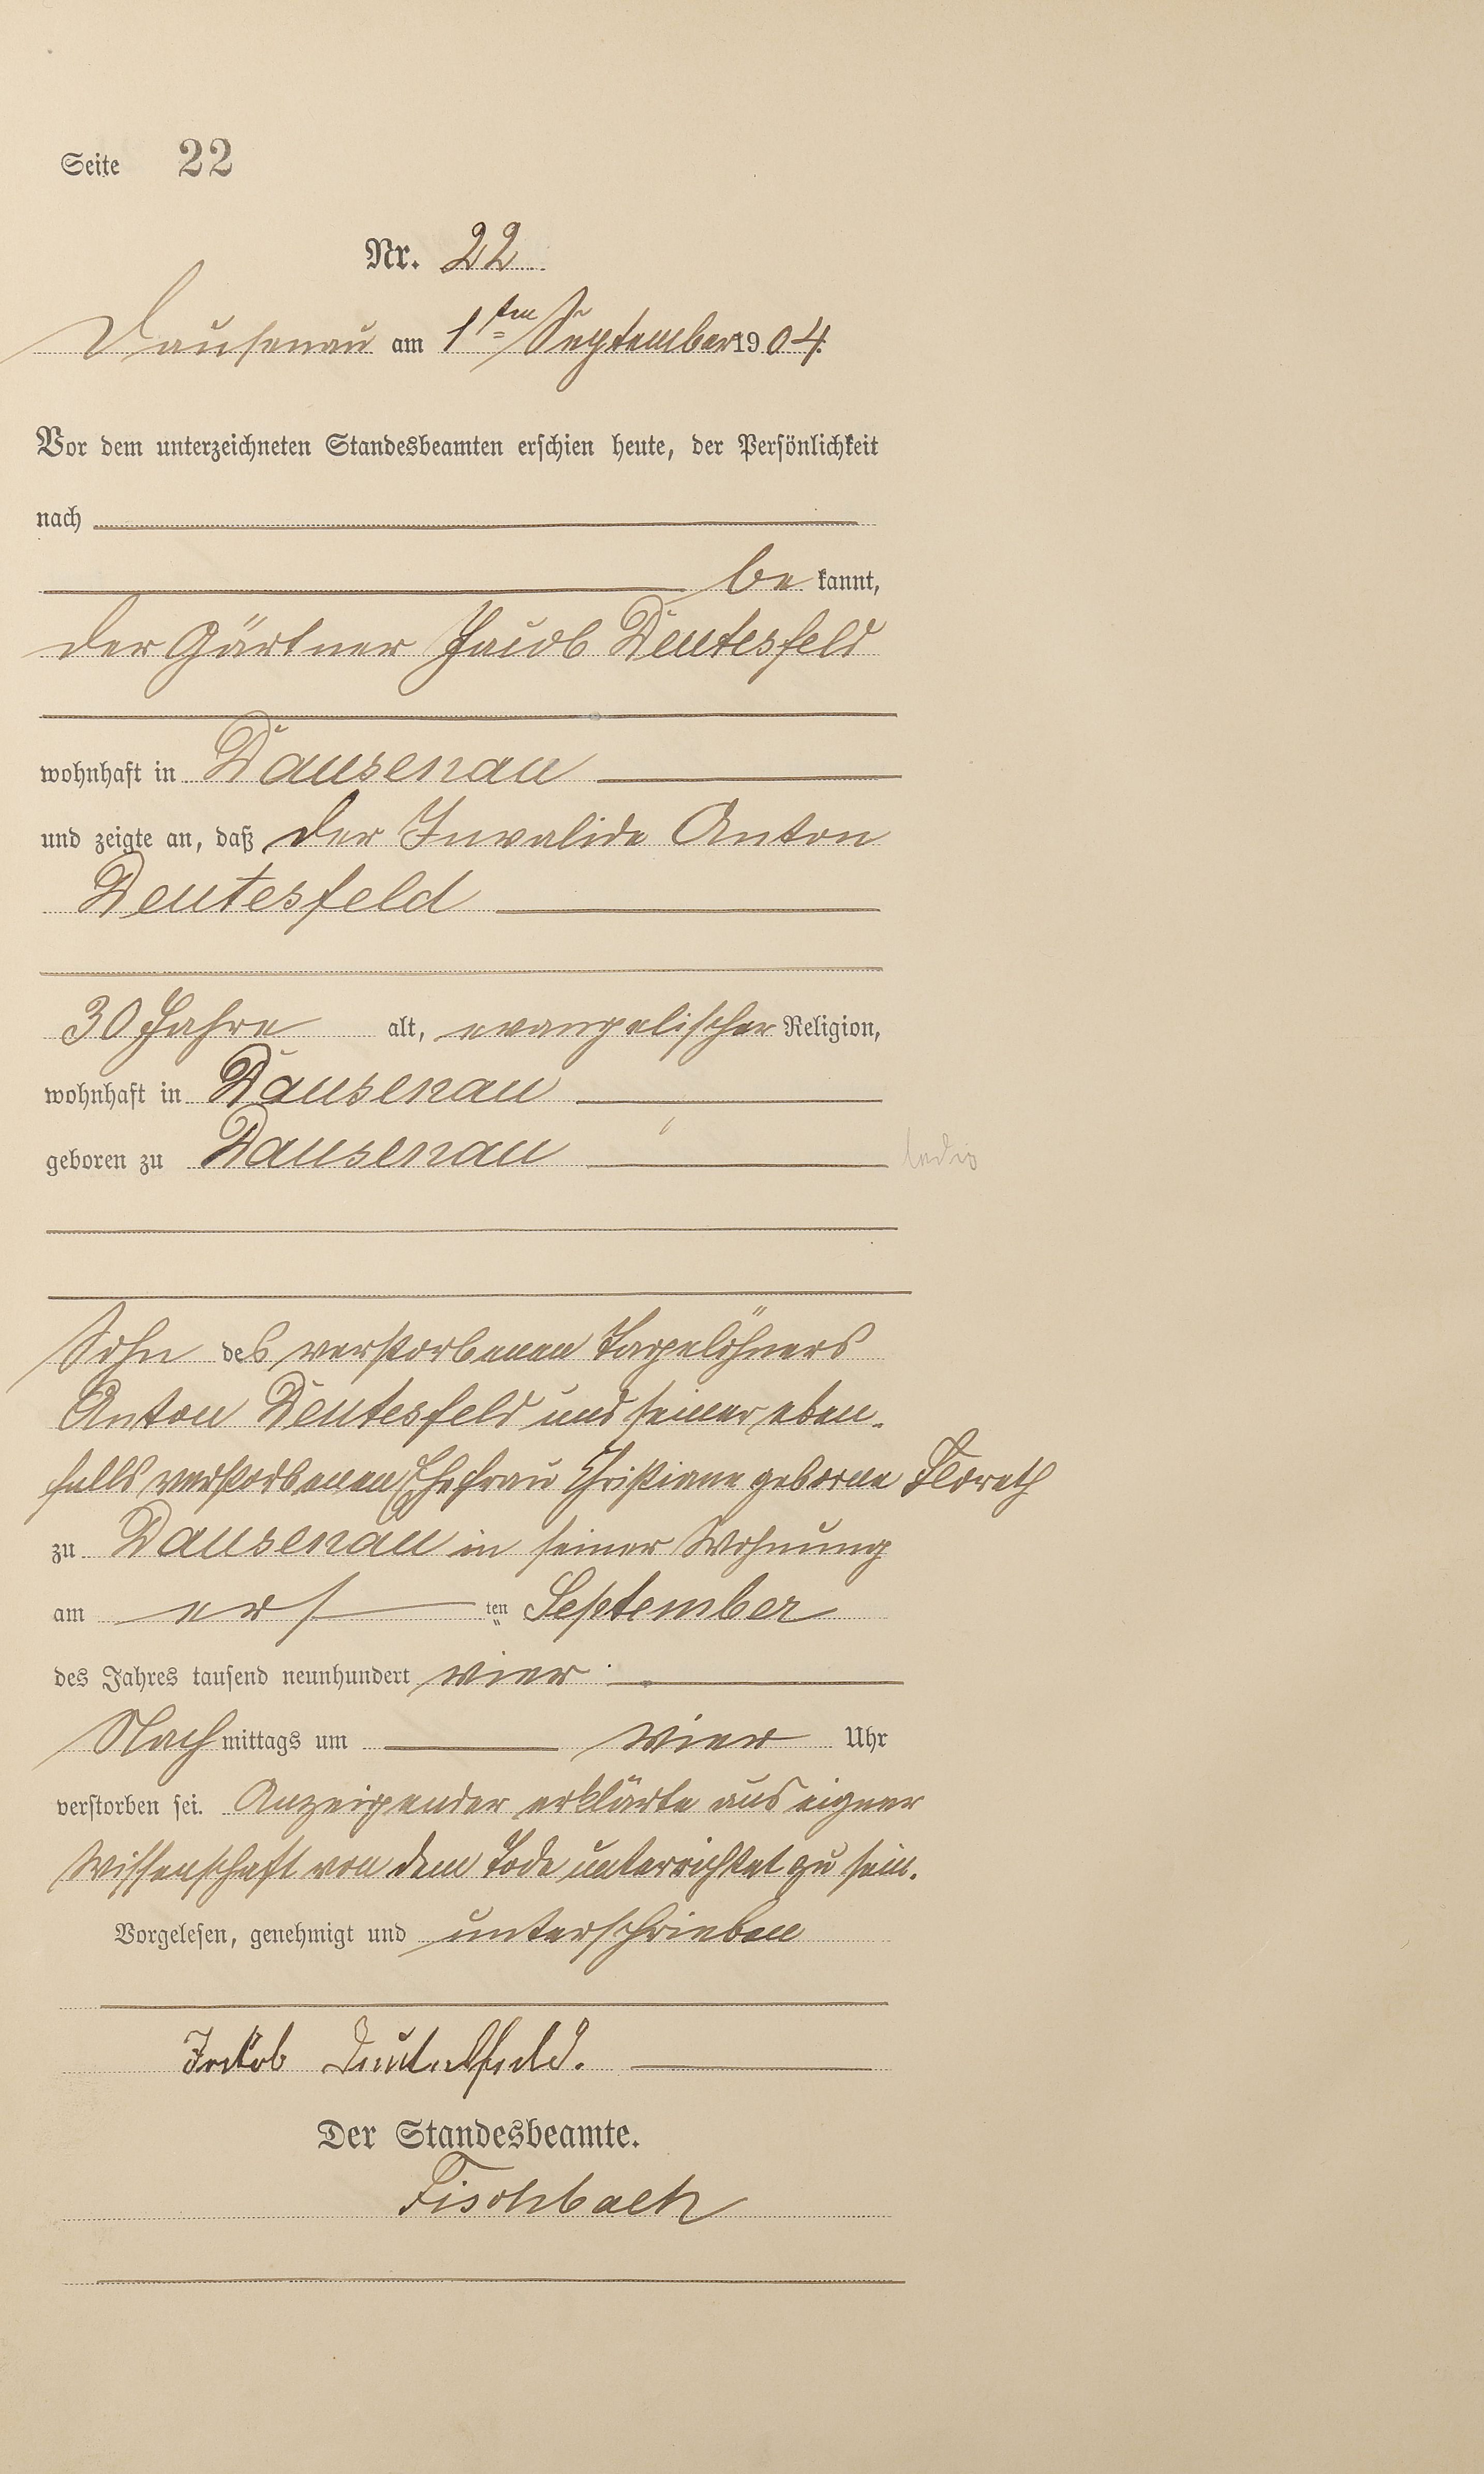 Seite 22
Nr. 22
Dausenau am 1ten September 1904.
Vor dem unterzeichneten Standesbeamten erschien heute, der Persönlichkeit
nach
be kannt,
der Gärtner Jacob Deutesfeld
wohnhaft in Dausenau
und zeigte an, daß der Invalide Anton
Deutesfeld
30 Jahre alt, evangelischer Religion,
wohnhaft in Dausenau
geboren zu Dausenau ledig
Sohn des verstorbenen Tagelöhners
Anton Deutesfeld und seiner eben-
falls verstorbenen Ehefrau Christiane geborne
zu Dausenau in seiner Wohnung
am ers ten September
des Jahres tausend neunhundert vier
Nach mittags um vier Uhr
verstorben sei. Anzeigender erklärte aus eigner
Wissenschaft von dem Tode unterrichtet zu sein.
Vorgelesen, genehmigt und unterschrieben
Jakob Deutesfeld.
Der Standesbeamte.
Fischbach